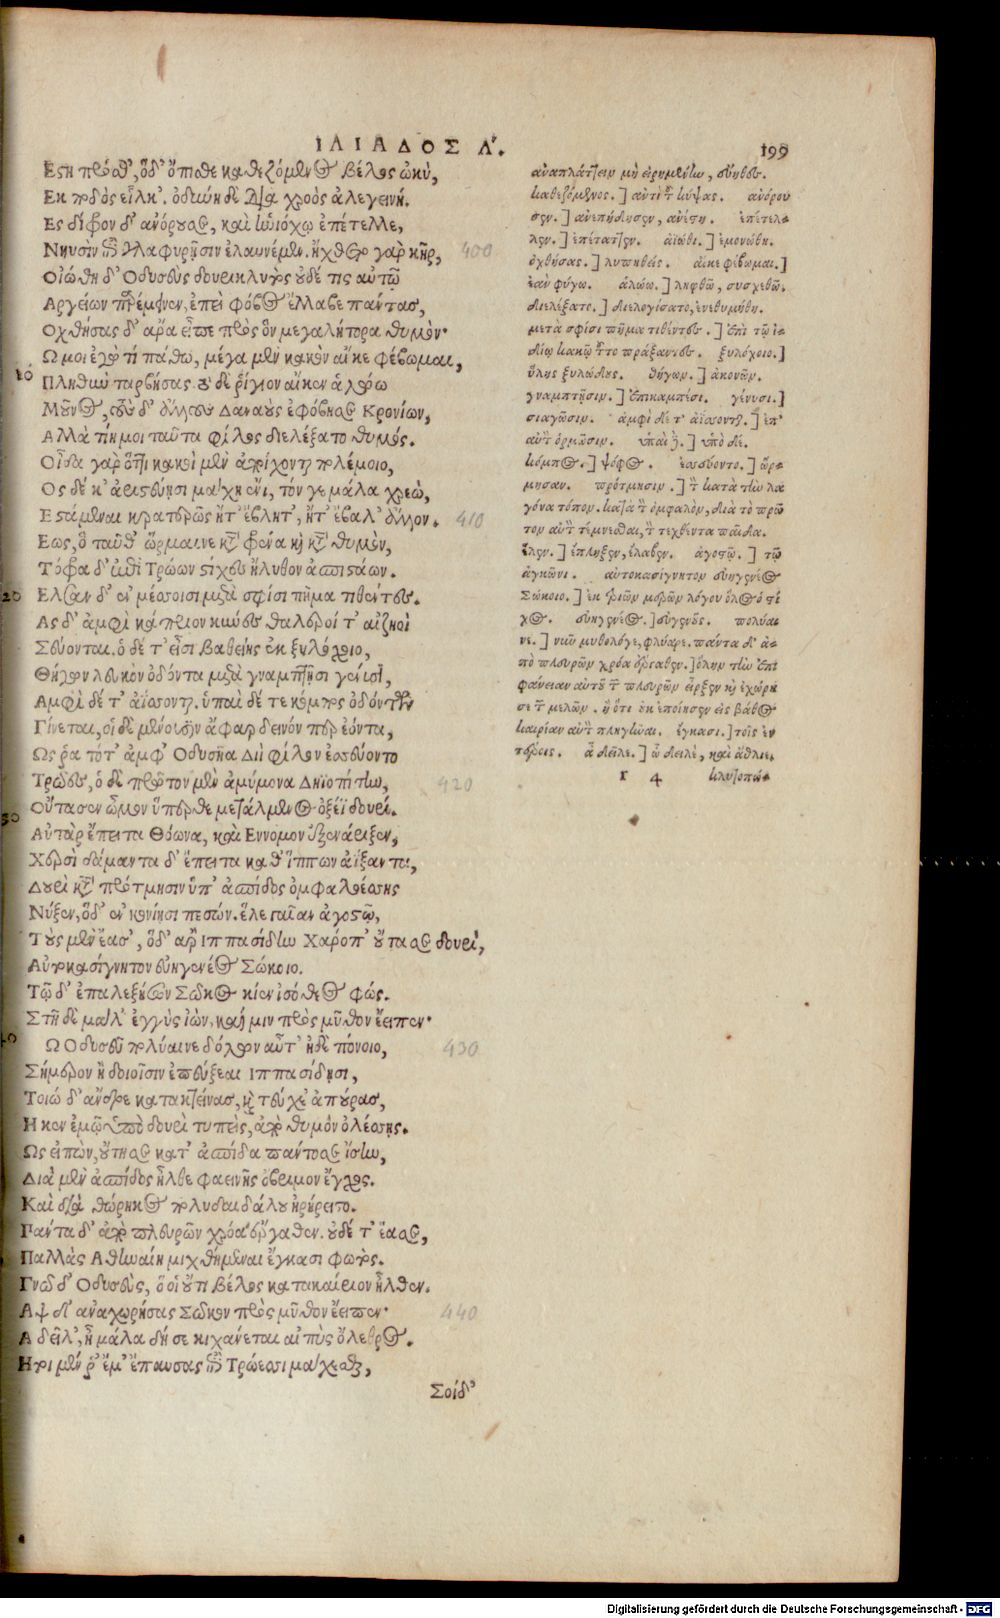 ΙΛΙΑΔΟΣ Λ.
199
Εστη πρόσθ', ὅδ' ὄπισθε καθεζόμενος βέλος ὠκὺ,
Εκ ποδὸς εἷλκ'. ὀδύνη δὲ διὰ χροὸς ἀλεγεινή.
Ες δίφρον δ' ἀνόρουσε, καὶ ἡνιόχῳ ἐπέτελλε,
Νηυσὶν ἐπὶ γλαφυρῇσιν ἐλαυνέμεν. ἤχθετο γὰρ κῆρ, 400
Οἰώθη δ' Οδυσεὺς δουρικλυτὸς οὐδέ τις αὐτῷ
Αργείων παρέμεινεν, ἐπεὶ φόβος ἔλλαβε πάντας,
Οχθήσας δ' ἄρα εἶπε πρὸς ὃν μεγαλήτορα θυμόν·
Ω μοι ἐγὼ τί πάθω, μέγα μὲν κακὸν αἴ κε φέβωμαι,
10
Πληθὺν ταρβήσας. τὸ δὲ ῥίγιον αἴ κεν ἁλώω
Μοῦνος, τοὺς δ' ἄλλους Δαναοὺς ἐφόβησε Κρονίων,
Αλλὰ τίη μοι ταῦτα φίλος διελέξατο θυμός.
Οἶδα γὰρ ὅττι κακοὶ μὲν ἀποίχονται πολέμοιο,
Ος δέ κ' ἀριστεύῃσι μάχῃ ἔνι, τόν γε μάλα χρεὼ,
Εστάμεναι κρατερῶς ἤτ' ἔβλητ', ἤτ' ἔβαλ' ἄλλον. 410
Εως, ὁ ταῦθ' ὥρμαινε κατὰ φρένα καὶ κατὰ θυμὸν,
Τόφρα δ' ἐπὶ Τρώων στίχες ἤλυθον ἀσπιστάων.
20
Ελσαν δ' ἐν μέσοισι μετὰ σφίσι πῆμα τιθέντες.
Ας δ' ἀμφὶ κάπριον κύνες θαλεροί τ' αἰζηοὶ
Σεύονται. ὁ δέ τ' εἶσι βαθείης ἐκ ξυλόχοιο,
Θήγων λευκὸν ὀδόντα μετὰ γναμπτῇσι γένυσι,
Αμφὶ δέ τ' ἀΐσσονται. ὑπαὶ δέ τε κόμπος ὀδόντων
Γίνεται, οἱ δὲ μένουσιν ἄφαρ δεινόν περ ἐόντα,
Ως ῥα τότ' ἀμφ' Οδυσῆα Διὶ φίλον ἐσσεύοντο
Τρῶες, ὁ δὲ πρῶτον μὲν ἀμύμονα Δηϊοπίτην, 420
Οὔτασεν ὦμον ὕπερθε μετάλμενος ὀξέϊ δουρί.
30
Αὐτὰρ ἔπειτα Θόωνα, καὶ Εννομον ἐξενάριξεν,
Χερσὶ δάμαντα δ' ἔπειτα καθ' ἵππων ἀΐξαντα,
Δουρὶ κατὰ πρότμησιν ὑπ' ἀσπίδος ὀμφαλοέσσης
Νύξεν, ὅδ' ἐν κονίῃσι πεσών. ἕλε γαῖαν ἀγοστῷ,
Τοὺς μὲν ἔασ', ὅδ' ἄρ' Ιππασίδην Χάροπ' οὔτασε δουρὶ,
Αὐτοκασίγνητον εὐηγενέος Σώκοιο.
Τῷ δ' ἐπαλεξήσων Σῶκος κίεν ἰσόθεος φώς.
Στῆ δὲ μάλ' ἐγγὺς ἰών, καί μιν πρὸς μῦθον ἔειπεν·
Ω Οδυσεῦ πολύαινε δόλων ἆτ' ἠδὲ πόνοιο, 430
Σήμερον ἢ δοιοῖσιν ἐπεύξεαι Ιππασίδῃσι,
Τοιώδ' ἄνδρε κατακτείνας, καὶ τεύχε' ἀπούρας,
Η κεν ἐμῷ ὑπὸ δουρὶ τυπεὶς, ἀπὸ θυμὸν ὀλέσσῃς.
Ως εἰπὼν, οὔτησε κατ' ἀσπίδα πάντοσε ἴσην,
Διὰ μὲν ἀσπίδος ἦλθε φαεινῆς ὄβριμον ἔγχος.
Καὶ διὰ θώρηκος πολυδαιδάλου ἠρήρειστο.
Πάντα δ' ἀπὸ πλευρῶν χρόα ἔργαθεν. οὐδέ τ' ἔασε,
Παλλὰς Αθηναίη μιχθήμεναι ἔγκασι φωτός.
Γνῶ δ' Οδυσεὺς, ὅ οἱ οὔτι βέλος κατακαίριον ἦλθεν.
Αψ δ' ἀναχωρήσας Σῶκον πρὸς μῦθον ἔειπεν· 440
Α δείλ', ἦ μάλα δή σε κιχάνεται αἰπὺς ὄλεθρος.
Ητοι μέν ῥ' ἔμ' ἔπαυσας ἐπὶ Τρώεσσι μάχεσθαι,
Σοὶ δ'
καθεζόμενος.] ἀντὶ τοῦ κύψας. ἀνόρου
σεν.] ἀνεπήδησεν, ἀνέστη. ἐπέτελ-
λεν.] ἐπέταττεν. οἰώθη.] ἐμονώθη.
ὀχθήσας.] λυπηθείς. αἴκε φέβωμαι.]
ἐὰν φύγω. ἁλώω.] ληφθῶ, συσχεθῶ.
διελέξατο.] διελογίσατο, ἐνεθυμήθη.
μετὰ σφίσι πῆμα τιθέντες.] ἐπὶ τῷ ἰ-
δίῳ κακῷ τοῦτο πράξαντες. ξυλόχοιο.]
ὕλης ξυλώδους. θήγων.] ἀκονῶν.
γναμπτῇσιν.] ἐπικαμπέσι. γένυσι.]
σιαγῶσιν. ἀμφὶ δέ τ' ἀΐσσονται.] ἐπ'
αὐτὸν ὁρμῶσιν. ὑπαὶ δέ.] ὑπὸ δέ.
κόμπος.] ψόφος. ἐσσεύοντο.] ὥρ-
μησαν. πρότμησιν.] τὸν κατὰ τὴν λα
γόνα τόπον. κατὰ τὸν ὀμφαλὸν, διὰ τὸ πρῶ
τον αὐτὸν τέμνεσθαι, τῶν τεχθέντα παιδία.
ἕλεν.] ἔπληξεν, ἔλαβεν. ἀγοστῷ.] τῷ
ἀγκῶνι. αὐτοκασίγνητον εὐηγενέος
Σώκοιο.] ἐκ τριῶν μερῶν λόγου ὅλος ὁ στί
χος. εὐηγενέος.] εὐγενοῦς. πολύαι
νε.] νῦν μυθολόγε, φλύαρε. πάντα δ' ἀ-
πὸ πλευρῶν χρόα ἔργαθεν.] ὅλην τὴν ἐπι
φάνειαν αὐτοῦ τῶν πλευρῶν εἶρξεν καὶ ἐχώρι
σε τῶν μελῶν. ἢ ὅτι οὐκ ἐποίησεν εἰς βάθος
καιρίαν αὐτὸν πληγῆναι. ἔγκασι.] τοῖς ἐν
τέροις. ἆ δεῖλε.] ὦ δειλὲ, καὶ ἄθλιε.
r 4
Digitalisierung gefördert durch die Deutsche Forschungsgemeinschaft - DFG